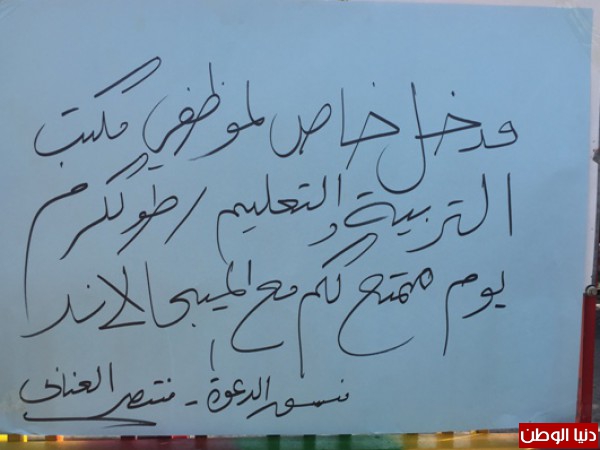 مدخل خاص لموظفي مكتب
التربية والتعليم / طولكرم
يوم ممتع لكم مع الميجا لاند
منسق الدعوة - منتصر العناني
دنيا الوطن